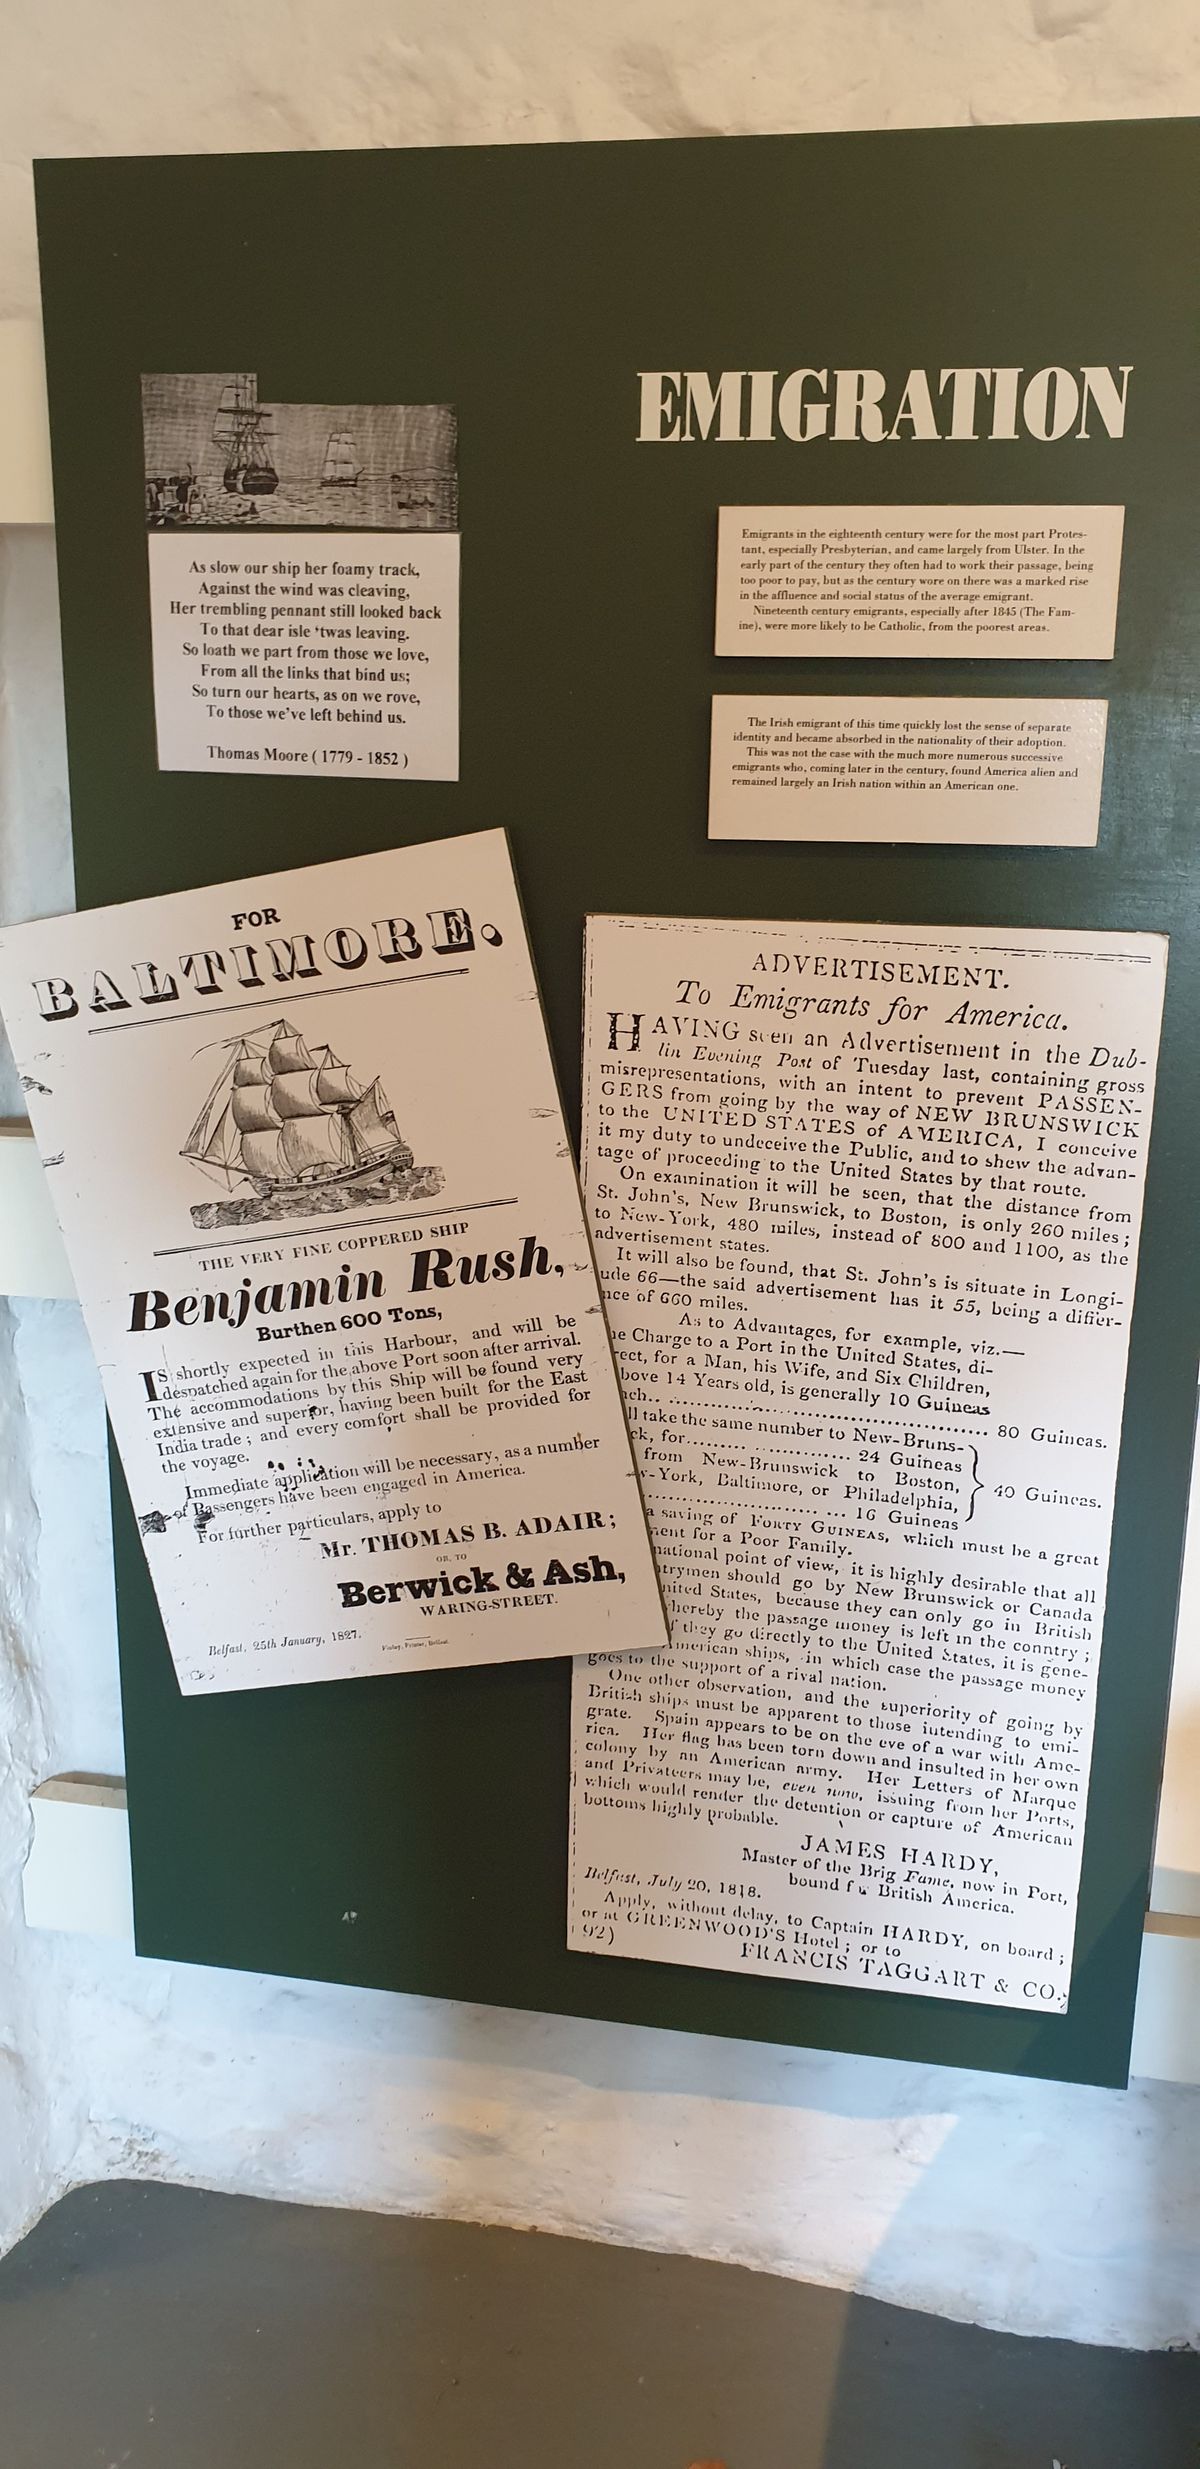 EMIGRATION
As slow our ship her foamy track,
Against the wind was cleaving,
Her trembling pennant still looked back
To that dear isle 'twas leaving.
So loath we part from those we love,
From all the links that bind us;
So turn our hearts, as on we rove,
To those we've left behind us.
Thomas Moore ( 1779 - 1852 )
Emigrants in the eighteenth century were for the most part Protes-
tant, especially Presbyterian, and came largely from Ulster. In the
early part of the century they often had to work their passage, being
too poor to pay, but as the century wore on there was a marked rise
in the affluence and social status of the average emigrant.
Nineteenth century emigrants, especially after 1845 (The Fam-
ine), were more likely to be Catholic, from the poorest areas.
The Irish emigrant of this time quickly lost the sense of separate
identity and became absorbed in the nationality of their adoption.
This was not the case with the much more numerous successive
emigrants who, coming later in the century, found America alien and
remained largely an Irish nation within an American one.
FOR
BALTIMORE.
THE VERY FINE COPPERED SHIP
Benjamin Rush,
Burthen 600 Tons,
IS shortly expected in this Harbour, and will be
despatched again for the above Port soon after arrival.
The accommodations by this Ship will be found very
extensive and superior, having been built for the East
India trade; and every comfort shall be provided for
the voyage.
Immediate application will be necessary, as a number
of Passengers have been engaged in America.
For further particulars, apply to
Mr. THOMAS B. ADAIR;
OR, TO
Berwick & Ash,
WARING-STREET.
Belfast, 25th January, 1827.
Printer, Belfast.
ADVERTISEMENT.
To Emigrants for America.
HAVING seen an Advertisement in the Dub-
lin Evening Post of Tuesday last, containing gross
misrepresentations, with an intent to prevent PASSEN-
GERS from going by the way of NEW BRUNSWICK
to the UNITED STATES of AMERICA, I conceive
it my duty to undeceive the Public, and to shew the advan-
tage of proceeding to the United States by that route.
On examination it will be seen, that the distance from
St. John's, New Brunswick, to Boston, is only 260 miles;
to New-York, 480 miles, instead of 800 and 1100, as the
advertisement states.
It will also be found, that St. John's is situate in Longi-
ude 66—the said advertisement has it 55, being a differ-
nce of 660 miles.
As to Advantages, for example, viz.—
e Charge to a Port in the United States, di-
rect, for a Man, his Wife, and Six Children,
bove 14 Years old, is generally 10 Guineas
ch........................................ 80 Guineas.
ll take the same number to New-Bruns-
ck, for.................. 24 Guineas
from New-Brunswick to Boston,
w-York, Baltimore, or Philadelphia, } 40 Guineas.
.................... 16 Guineas
a saving of FORTY GUINEAS, which must be a great
ment for a Poor Family.
national point of view, it is highly desirable that all
trymen should go by New Brunswick or Canada
nited States, because they can only go in British
hereby the passage money is left in the country;
f they go directly to the United States, it is gene-
merican ships, in which case the passage money
goes to the support of a rival nation.
One other observation, and the superiority of going by
British ships must be apparent to those intending to emi-
grate. Spain appears to be on the eve of a war with Ame-
rica. Her flag has been torn down and insulted in her own
colony by an American army. Her Letters of Marque
and Privateers may be, even now, issuing from her Ports,
which would render the detention or capture of American
bottoms highly probable.
JAMES HARDY,
Master of the Brig Fame, now in Port,
bound for British America.
Belfast, July 20, 1818.
Apply, without delay, to Captain HARDY, on board;
or at GREENWOOD'S Hotel; or to
92) FRANCIS TAGGART & CO.